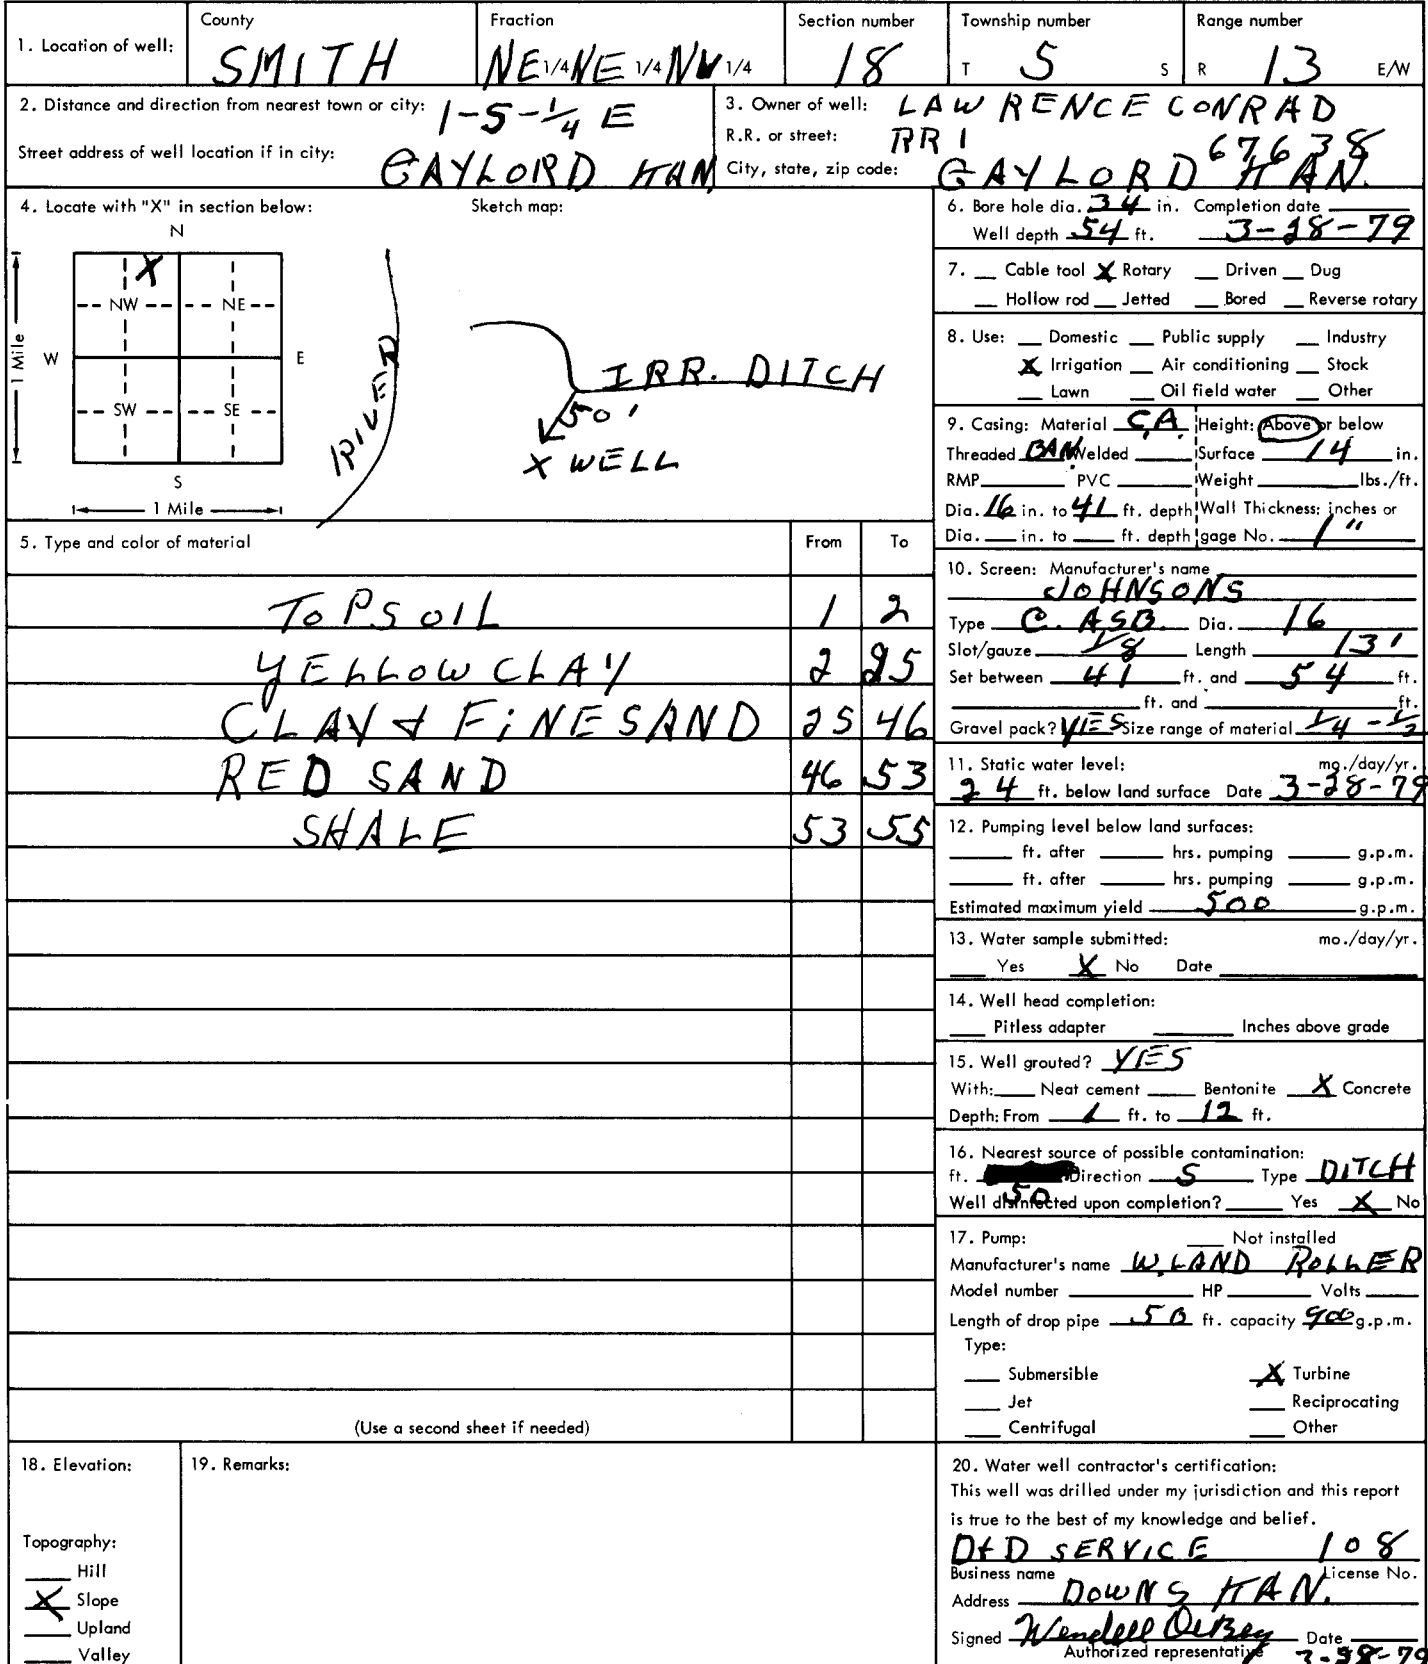 County Fraction Section number Township number Range number
1. Location of well: SMITH NE 1/4 NE 1/4 NW 1/4 18 T 5 S R 13 E/W
2. Distance and direction from nearest town or city: 1-S-1/4 E
Street address of well location if in city: GAYLORD KAN
3. Owner of well: LAWRENCE CONRAD
R.R. or street: RR 1
City, state, zip code: GAYLORD KAN. 67638
4. Locate with "X" in section below: Sketch map:
N
X
NW NE
W E
1 Mile
SW SE
S
1 Mile
RIVER
IRR. DITCH
50'
X WELL
5. Type and color of material From To
TOPSOIL 1 2
YELLOW CLAY 2 25
CLAY & FINE SAND 25 46
RED SAND 46 53
SHALE 53 55
(Use a second sheet if needed)
6. Bore hole dia. 34 in. Completion date
Well depth 54 ft. 3-28-79
7. Cable tool X Rotary Driven Dug
Hollow rod Jetted Bored Reverse rotary
8. Use: Domestic Public supply Industry
X Irrigation Air conditioning Stock
Lawn Oil field water Other
9. Casing: Material C.A. Height: Above or below
Threaded BAN Welded Surface 14 in.
RMP PVC Weight lbs./ft.
Dia. 16 in. to 41 ft. depth Wall Thickness: inches or
Dia. in. to ft. depth gage No. 1"
10. Screen: Manufacturer's name
JOHNSONS
Type C. ASB. Dia. 16
Slot/gauze 1/8 Length 13'
Set between 41 ft. and 54 ft.
ft. and ft.
Gravel pack? YES Size range of material 1/4 - 1/2
11. Static water level: mo./day/yr.
24 ft. below land surface Date 3-28-79
12. Pumping level below land surfaces:
ft. after hrs. pumping g.p.m.
ft. after hrs. pumping g.p.m.
Estimated maximum yield 500 g.p.m.
13. Water sample submitted: mo./day/yr.
Yes X No Date
14. Well head completion:
Pitless adapter Inches above grade
15. Well grouted? YES
With: Neat cement Bentonite X Concrete
Depth: From 1 ft. to 12 ft.
16. Nearest source of possible contamination:
ft. 50 Direction S Type DITCH
Well disinfected upon completion? Yes X No
17. Pump: Not installed
Manufacturer's name W.LAND ROLLER
Model number HP Volts
Length of drop pipe 50 ft. capacity 900 g.p.m.
Type:
Submersible X Turbine
Jet Reciprocating
Centrifugal Other
18. Elevation:
Topography:
Hill
X Slope
Upland
Valley
19. Remarks:
20. Water well contractor's certification:
This well was drilled under my jurisdiction and this report
is true to the best of my knowledge and belief.
D&D SERVICE 108
Business name License No.
Address DOWNS KAN.
Signed Wendell Date
Authorized representative 3-28-79